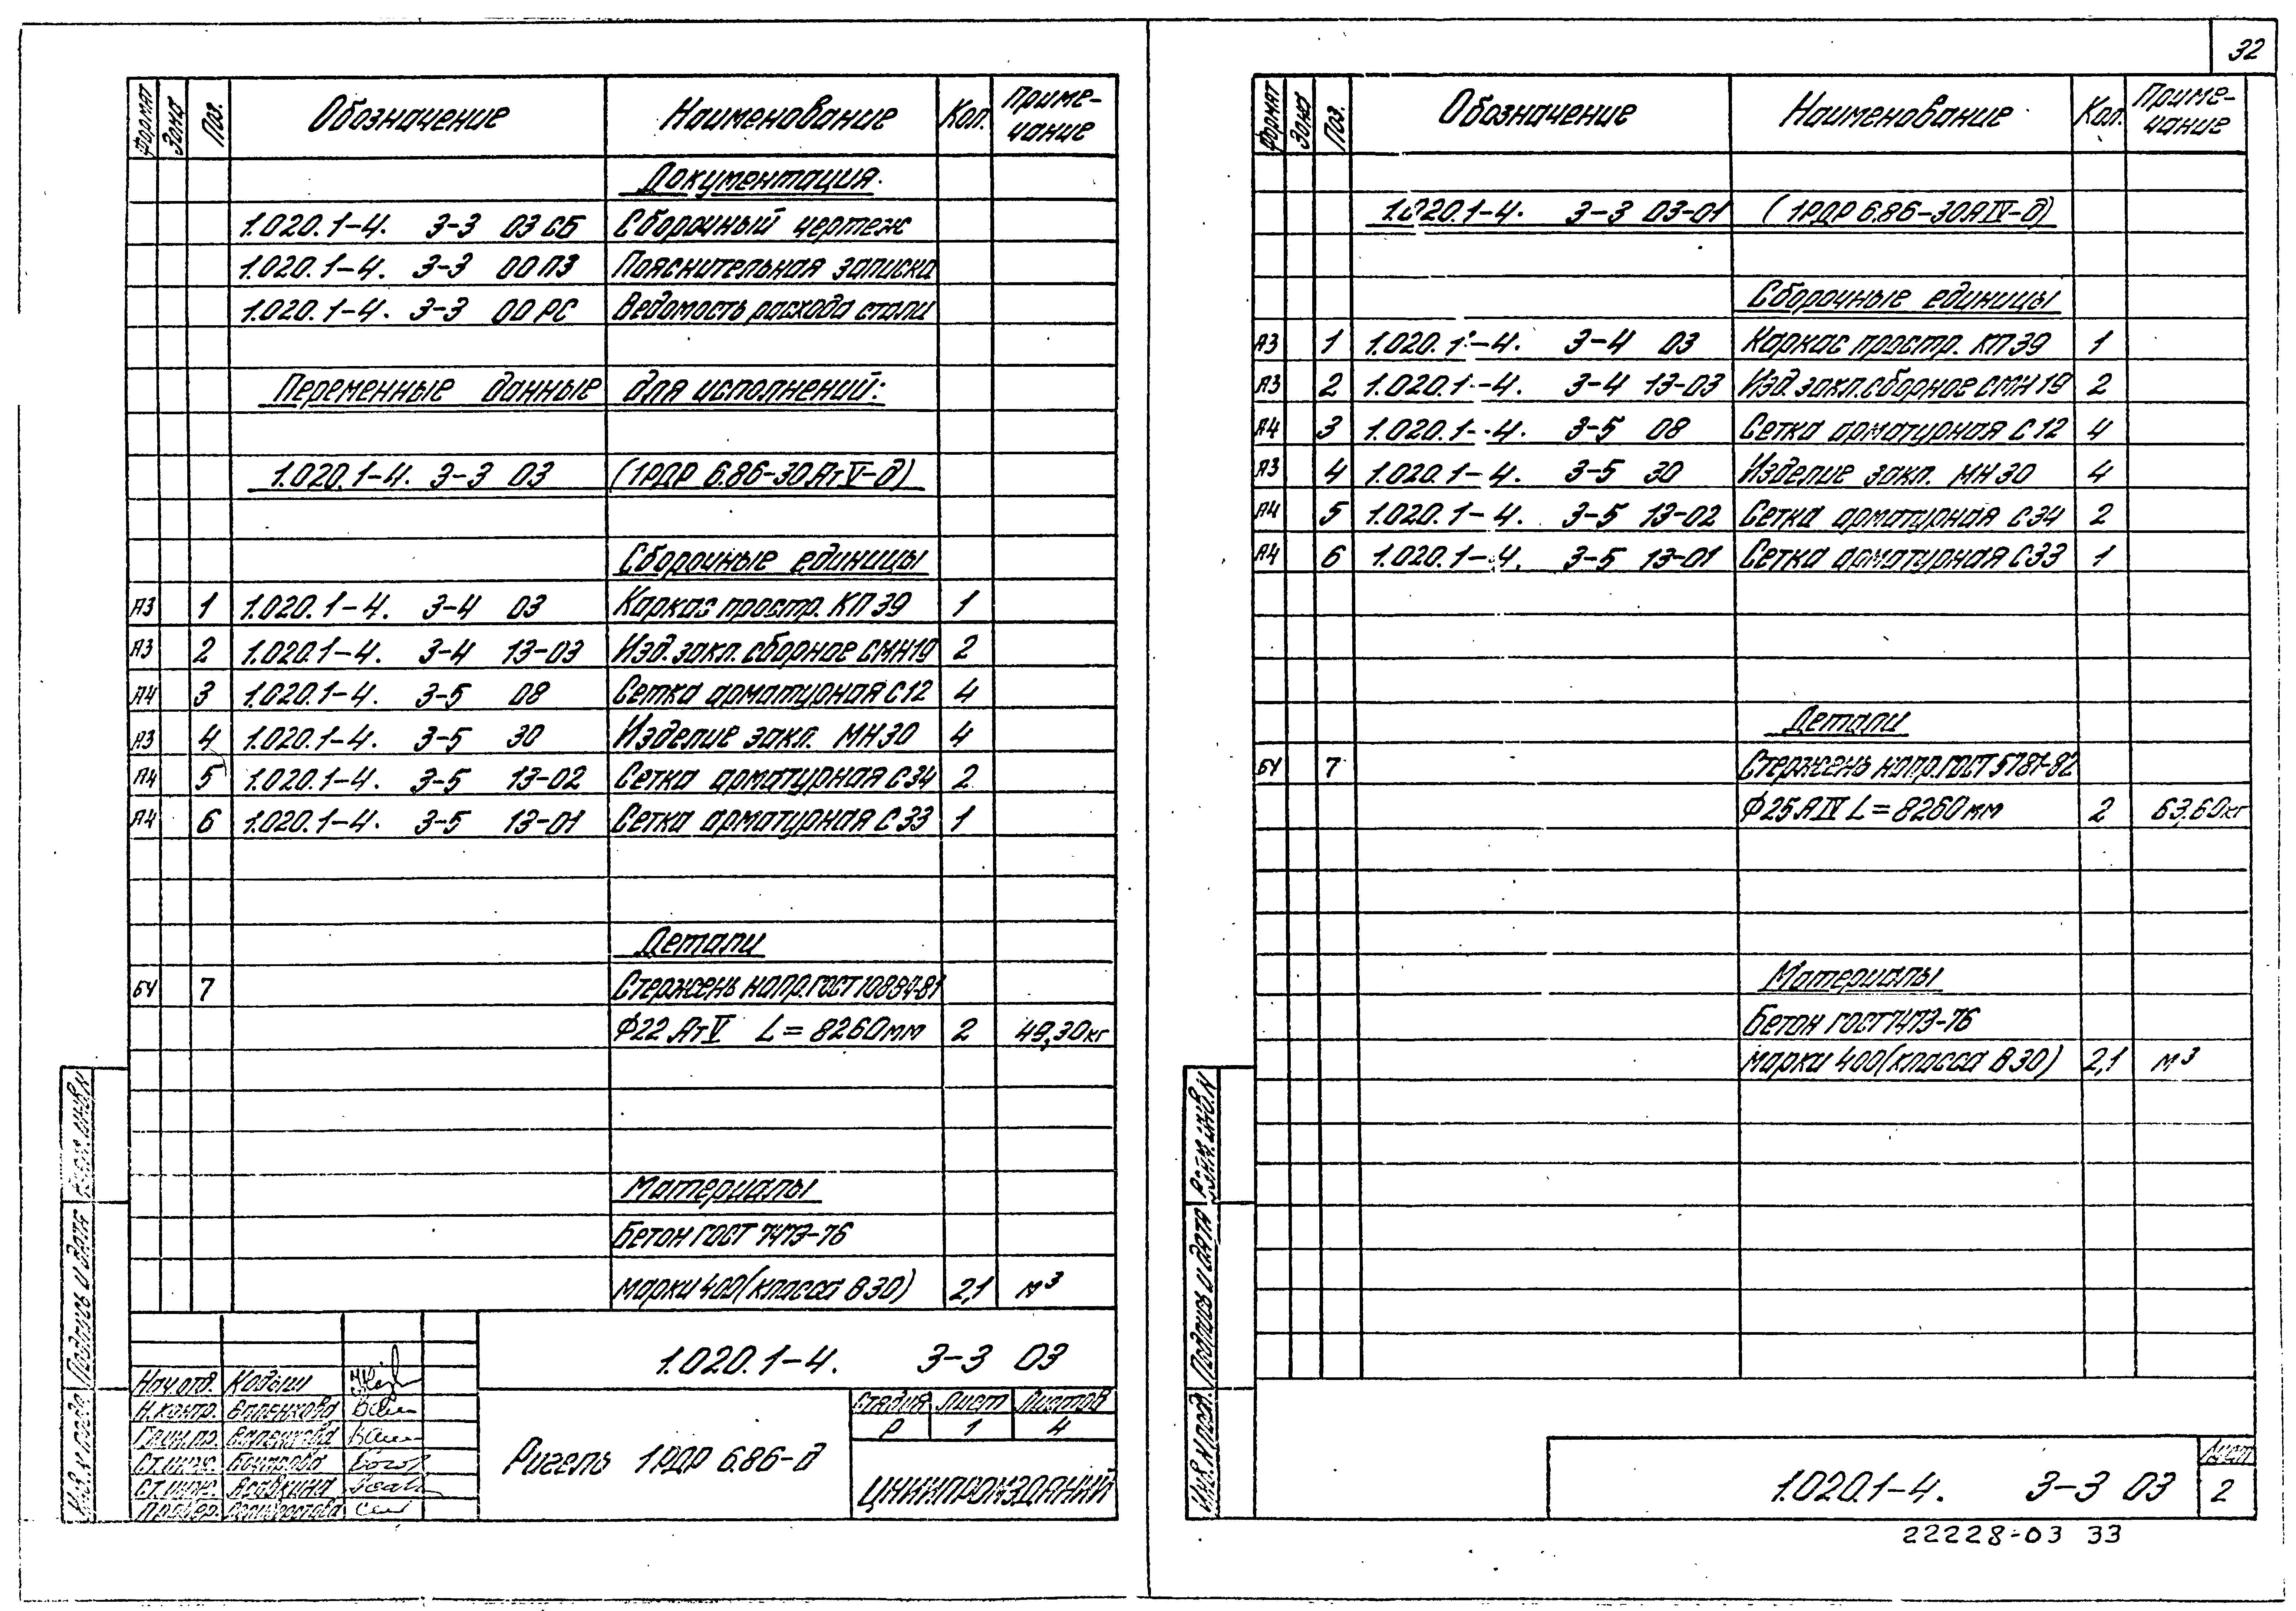 32
Формат Зона Поз. Обозначение Наименование Кол. Приме-чание
Документация
1.020.1-4. 3-3 03 СБ Сборочный чертеж
1.020.1-4. 3-3 00 ПЗ Пояснительная записка
1.020.1-4. 3-3 00 РС Ведомость расхода стали
Переменные данные для исполнений:
1.020.1-4. 3-3 03 (1РДР 6.86-30 АтV-д)
Сборочные единицы
А3 1 1.020.1-4. 3-4 03 Каркас простр. КП 39 1
А3 2 1.020.1-4. 3-4 13-03 Изд. закл. сборное СМН19 2
А4 3 1.020.1-4. 3-5 08 Сетка арматурная С12 4
А3 4 1.020.1-4. 3-5 30 Изделие закл. МН30 4
А4 5 1.020.1-4. 3-5 13-02 Сетка арматурная С34 2
А4 6 1.020.1-4. 3-5 13-01 Сетка арматурная С33 1
Детали
БЧ 7 Стержень напр. ГОСТ 10884-81
Ф22 АтV L = 8260мм 2 49,30кг
Материалы
Бетон ГОСТ 7473-76
марки 400 (класса В30) 2,1 м³
1.020.1-4. 3-3 03
Нач.отд. Кодыш
Н.контр. Валенкова
Гл.инж.пр. Валенкова
Ст.инж.
Ст.инж.
Провер.
Ригель 1РДР 6.86-д
Стадия Лист Листов
Р 1 4
ЦНИИПРОМЗДАНИЙ
Инв.№ подл. Подпись и дата Взам.инв.№
Формат Зона Поз. Обозначение Наименование Кол. Приме-чание
1.020.1-4. 3-3 03-01 (1РДР 6.86-30АIV-д)
Сборочные единицы
А3 1 1.020.1-4. 3-4 03 Каркас простр. КП 39 1
А3 2 1.020.1-4. 3-4 13-03 Изд. закл. сборное СМН 19 2
А4 3 1.020.1-4. 3-5 08 Сетка арматурная С12 4
А3 4 1.020.1-4. 3-5 30 Изделие закл. МН 30 4
А4 5 1.020.1-4. 3-5 13-02 Сетка арматурная С34 2
А4 6 1.020.1-4. 3-5 13-01 Сетка арматурная С33 1
Детали
БЧ 7 Стержень напр. ГОСТ 5781-82
Ф25 АIV L = 8260мм 2 63,60кг
Материалы
Бетон ГОСТ 7473-76
марки 400 (класса В30) 2,1 м³
Инв.№ подл. Подпись и дата Взам.инв.№
1.020.1-4. 3-3 03
Лист
2
22228-03 33